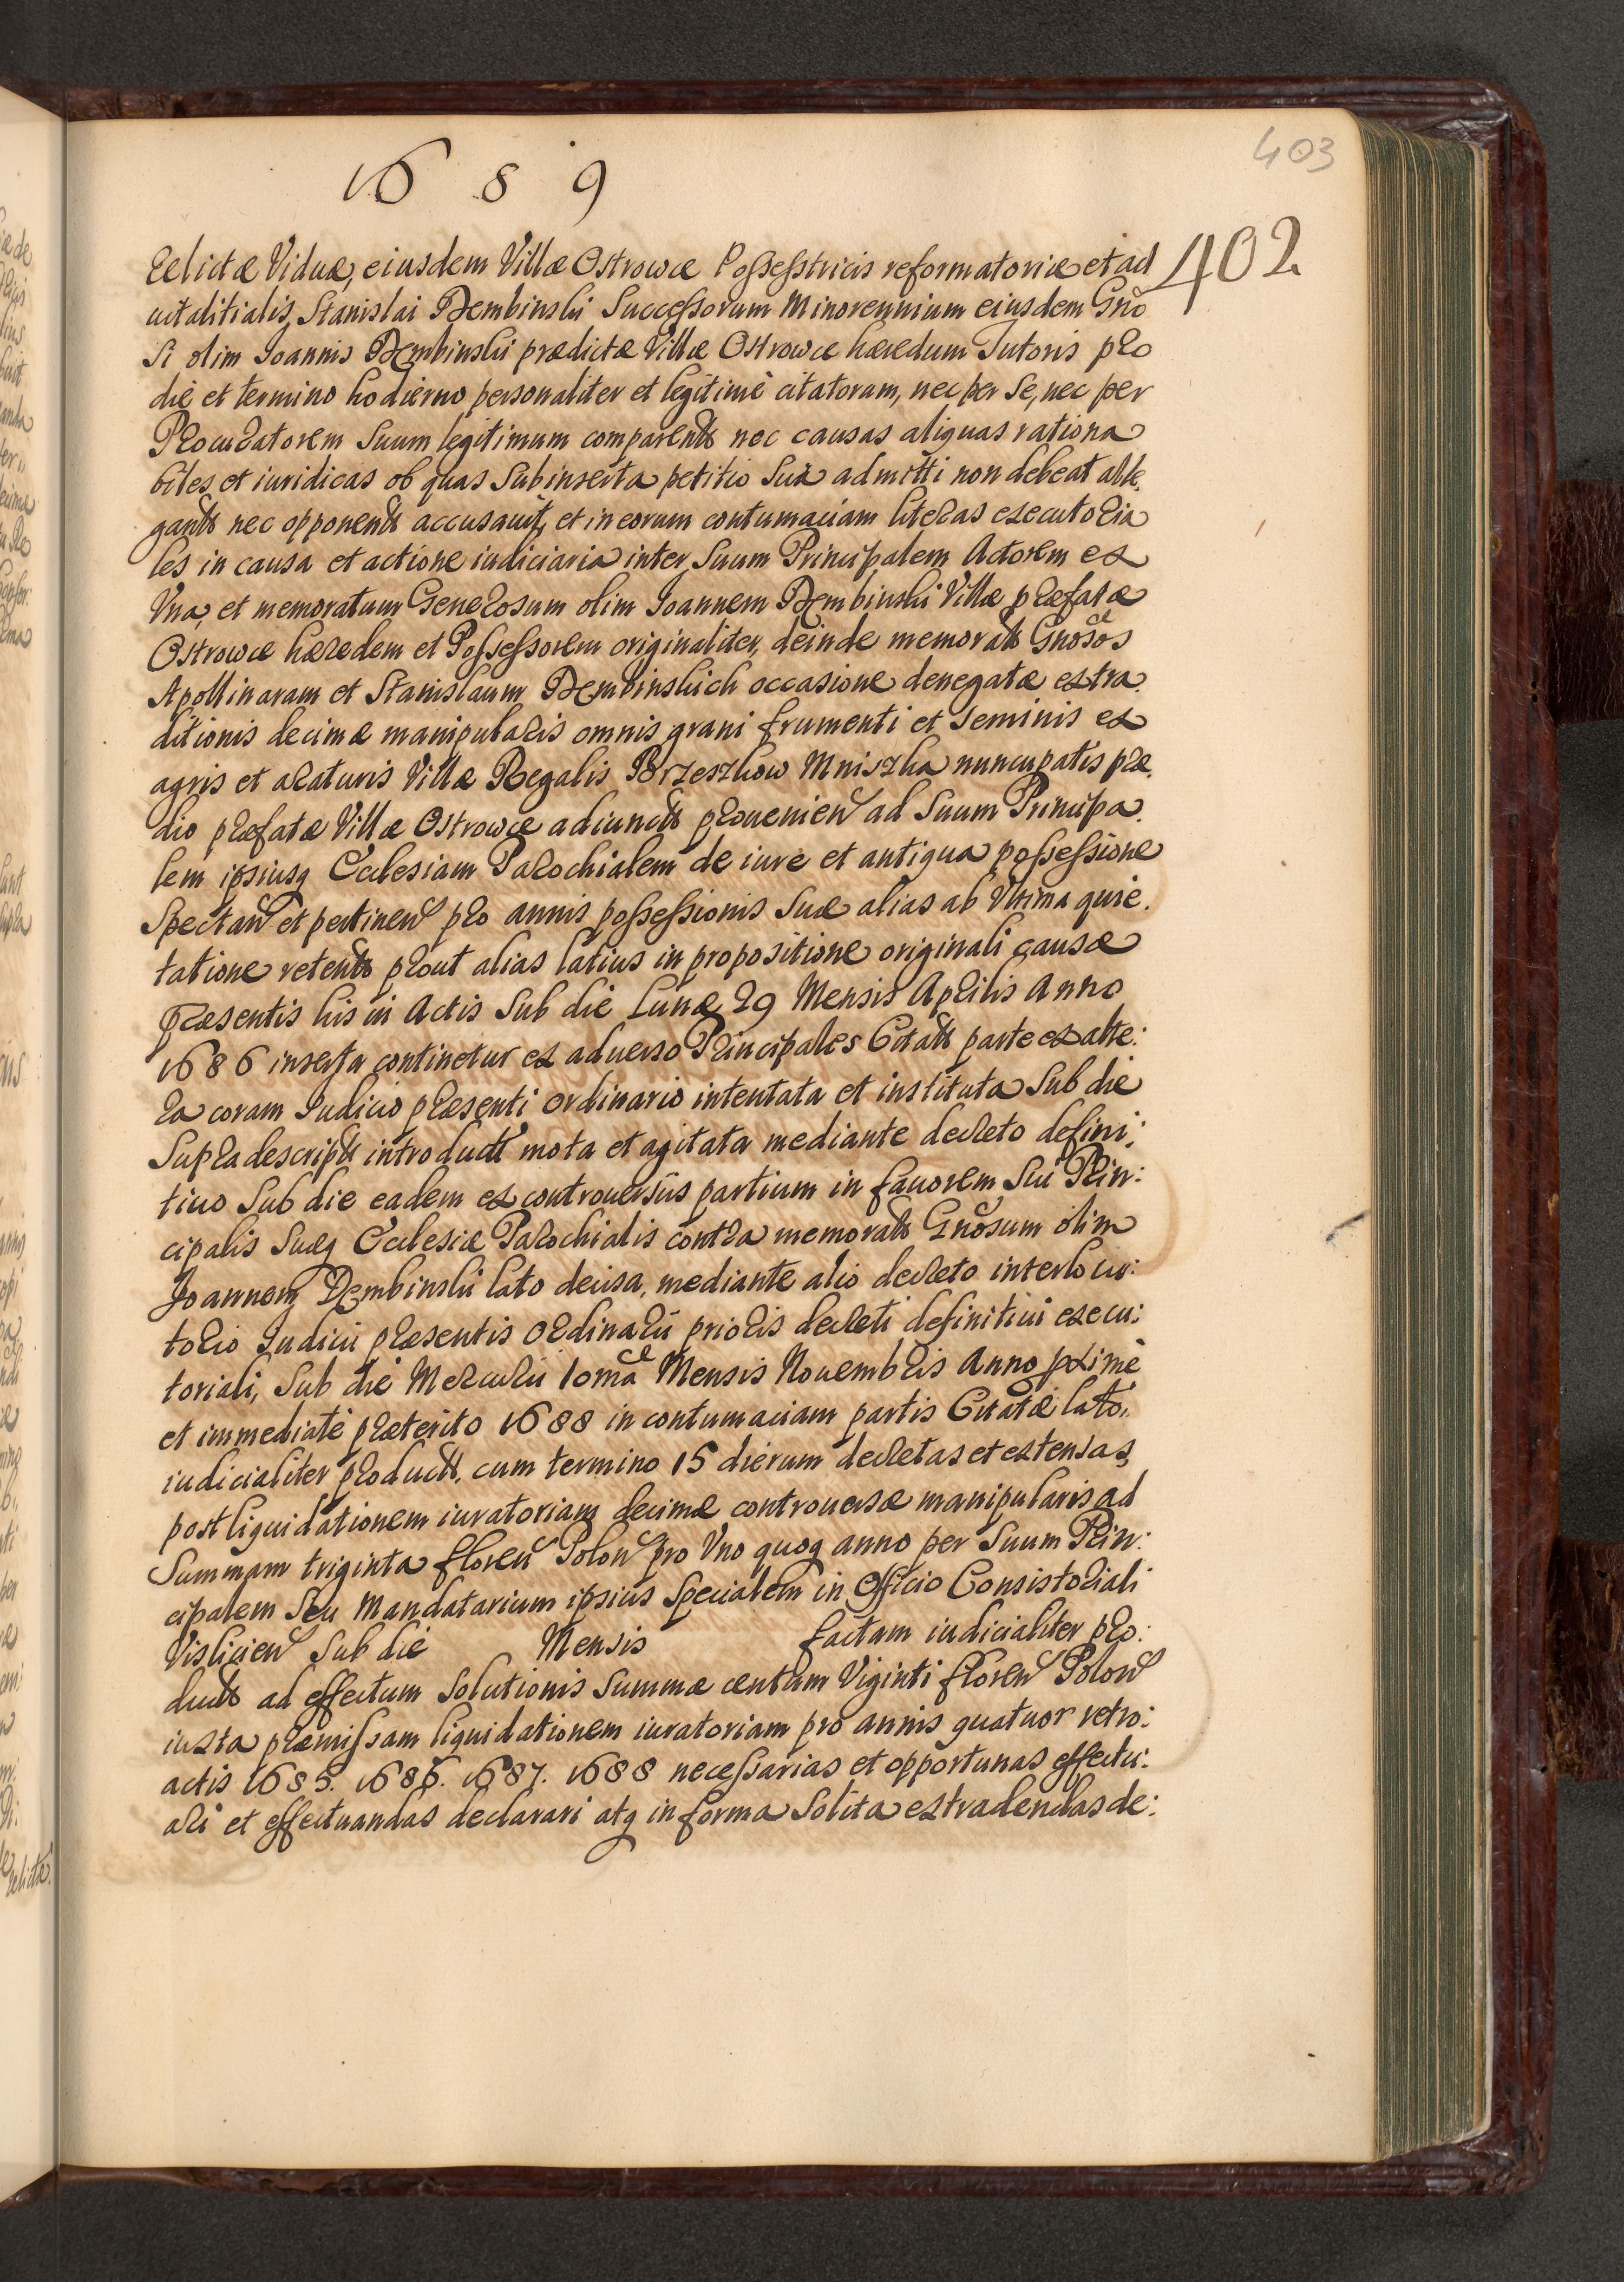 1689
403
402
Relictæ Viduæ, eiusdem Villæ Ostrowce Possesstricis reformatoriæ et ad
uitalitialis, Stanislai Dembinski Successorum Minorennium eiusdem Gno
si olim Ioannis Dembinski prædictæ Villæ Ostrowce hæredum Tutoris pro
die et termino hodierno personaliter et legitimè citatorum, nec per se, nec per
Procuratorem suum legitimum comparent nec causas aliquas rationa
biles et iuridicas ob quas subinserta petitio sua admitti non debeat alle,
gant nec opponent accusauit, et in eorum contumaciam literas executoria
les in causa et actione iudiciaria inter suum Principalem Actorem ex
Vna, et memoratum Generosum olim Ioannem Dembinski Villæ præfatæ
Ostrowce hæredem et Possessorem originaliter, deinde memorat Gnosos
Apollinaram et Stanislaum Dembinskich occasione denegatæ extra,
ditionis decimæ manipularis omnis grani frumenti et seminis ex
agris et araturis Villæ Regalis Brzeszkow Mniszka nuncupatis præ,
dio præfatæ Villæ Ostrowce adiunct prouenien ad suum Principa,
lem ipsiusq Ecclesiam Parochialem de iure et antiqua possessione
spectan et pertinen pro annis possessionis suæ alias ab Vltima quie,
tatione retent prout alias latius in propositione originali causæ
præsentis his in Actis sub die Lunæ 29 Mensis Aprilis Anno
1686 inserta continetur ex aduerso Principales Citat parte ex alte:
ra coram Iudicio præsenti ordinario intentata et instituta sub die
supradescript introduct mota et agitata mediante decreto defini:
tiuo sub die eadem ex controuersiis partium in fauorem sui Prin:
cipalis suæq Ecclesiæ Parochialis contra memorat Gnosum olim
Joannem Dembinski lato decisa, mediante alio decreto interlocu:
torio Iudicii præsentis ordinarii prioris decreti definitiui execu:
toriali, sub die Mercurii 10ma Mensis Nouembris Anno pximè
et immediatè præterito 1688 in contumaciam partis Citatæ lato,
iudicialiter product, cum termino 15 dierum decretas et extensas,
post liquidationem iuratoriam decimæ controuersæ manipularis ad
Summam triginta floren Polon pro Vno quoq anno per suum Prin:
cipalem seu Mandatarium ipsius specialem in Officio Consistoriali
Vislicien sub die Mensis factam iudicialiter pro:
duct ad effectum solutionis summæ centum Viginti floren Polon
iuxta præmissam liquidationem iuratoriam pro annis quatuor retro:
actis 1685. 1686. 1687. 1688 necessarias et opportunas effectu:
ari et effectuandas declarari atq in forma solita extradendas de: